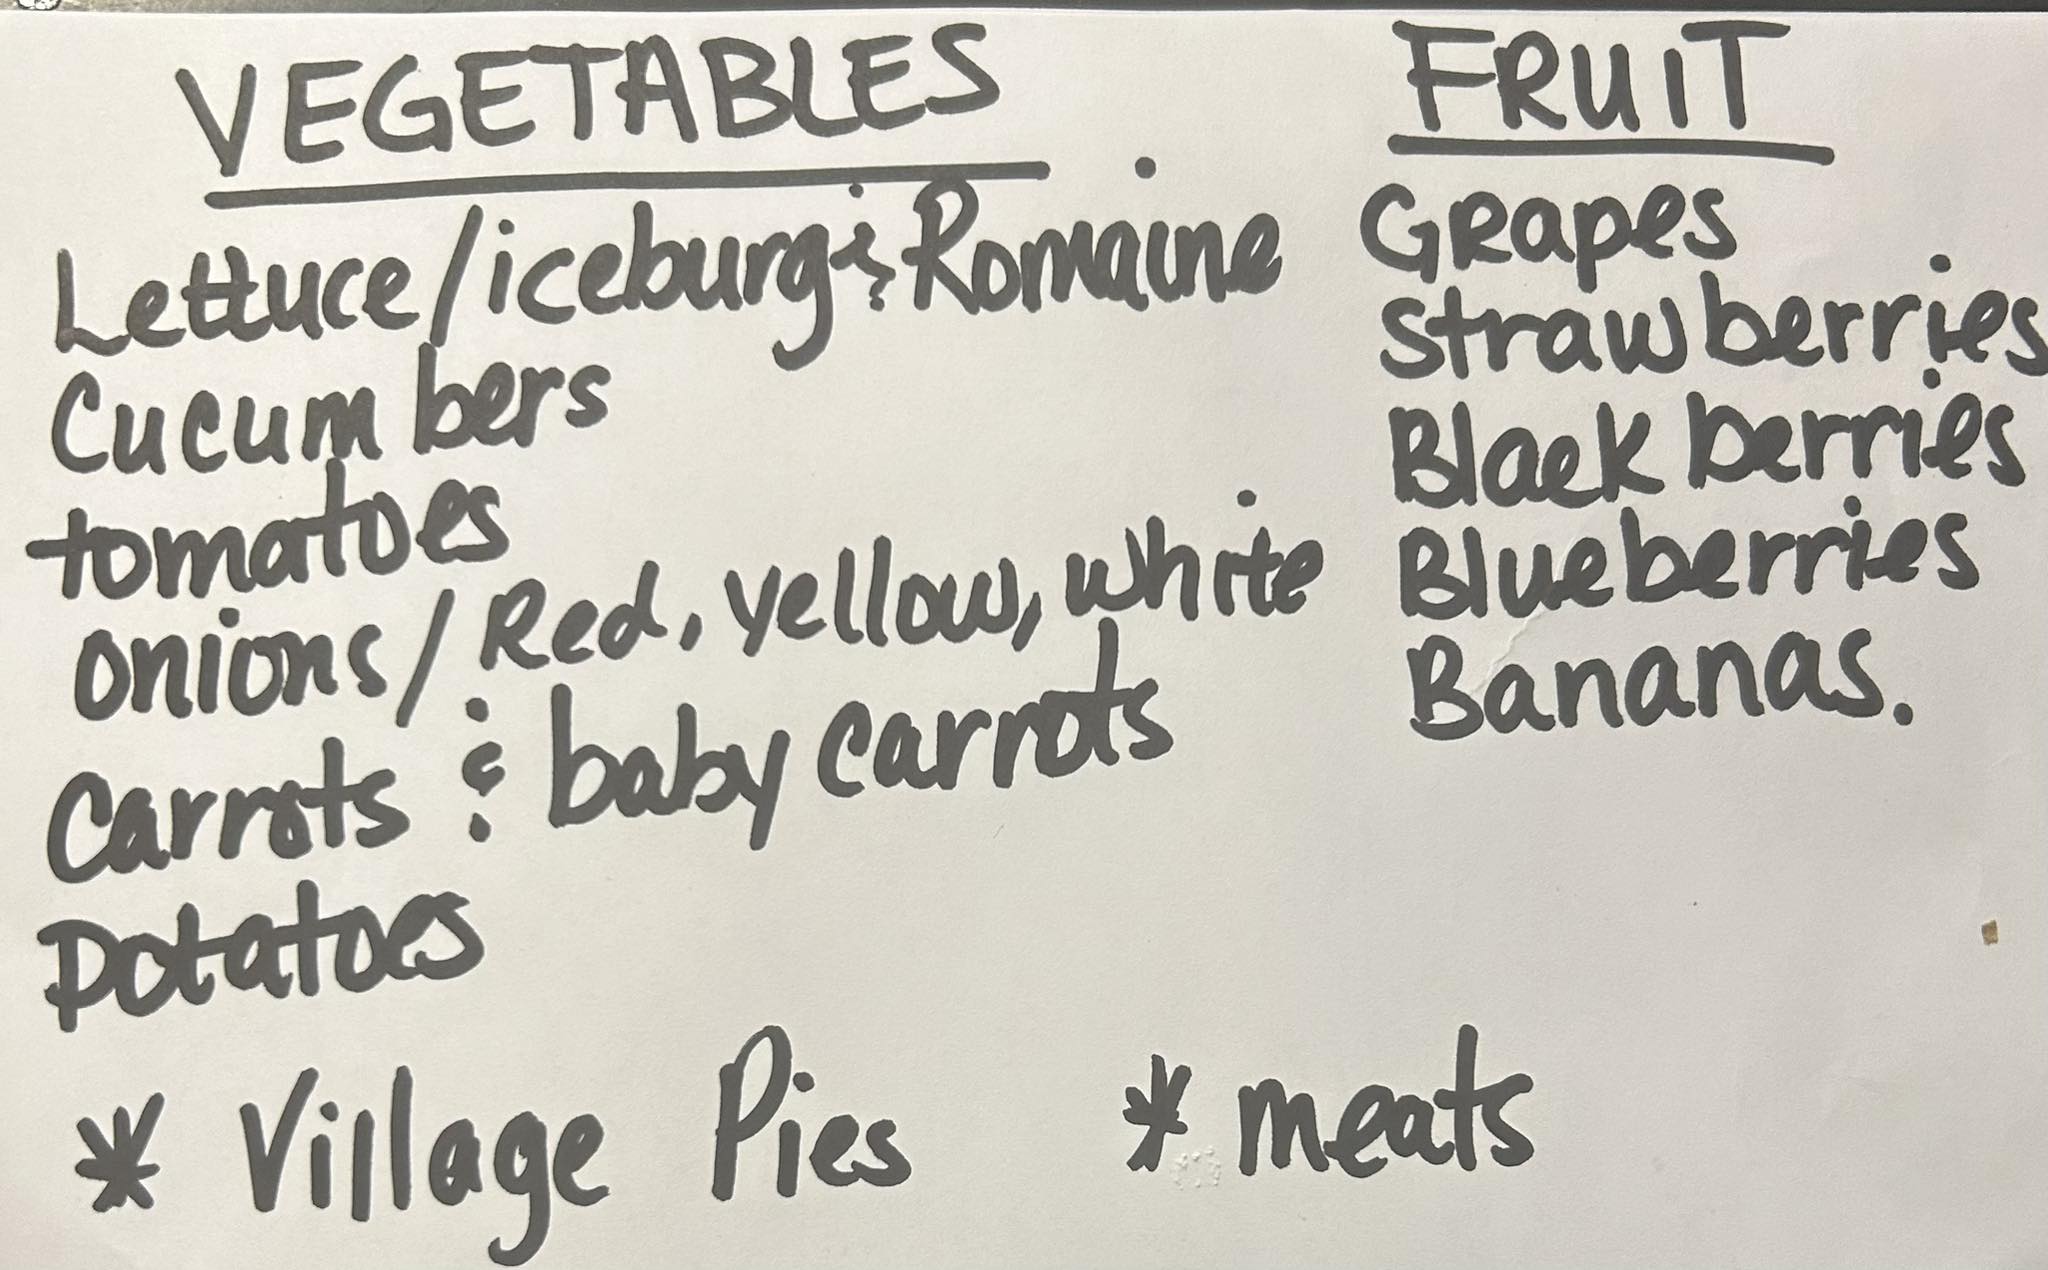 VEGETABLES
Lettuce/iceburg & Romaine
Cucumbers
tomatoes
onions/Red, yellow, white
Carrots & baby carrots
Potatoes
FRUIT
GRapes
Strawberries
Blackberries
Blueberries
Bananas.
* Village Pies
* meats